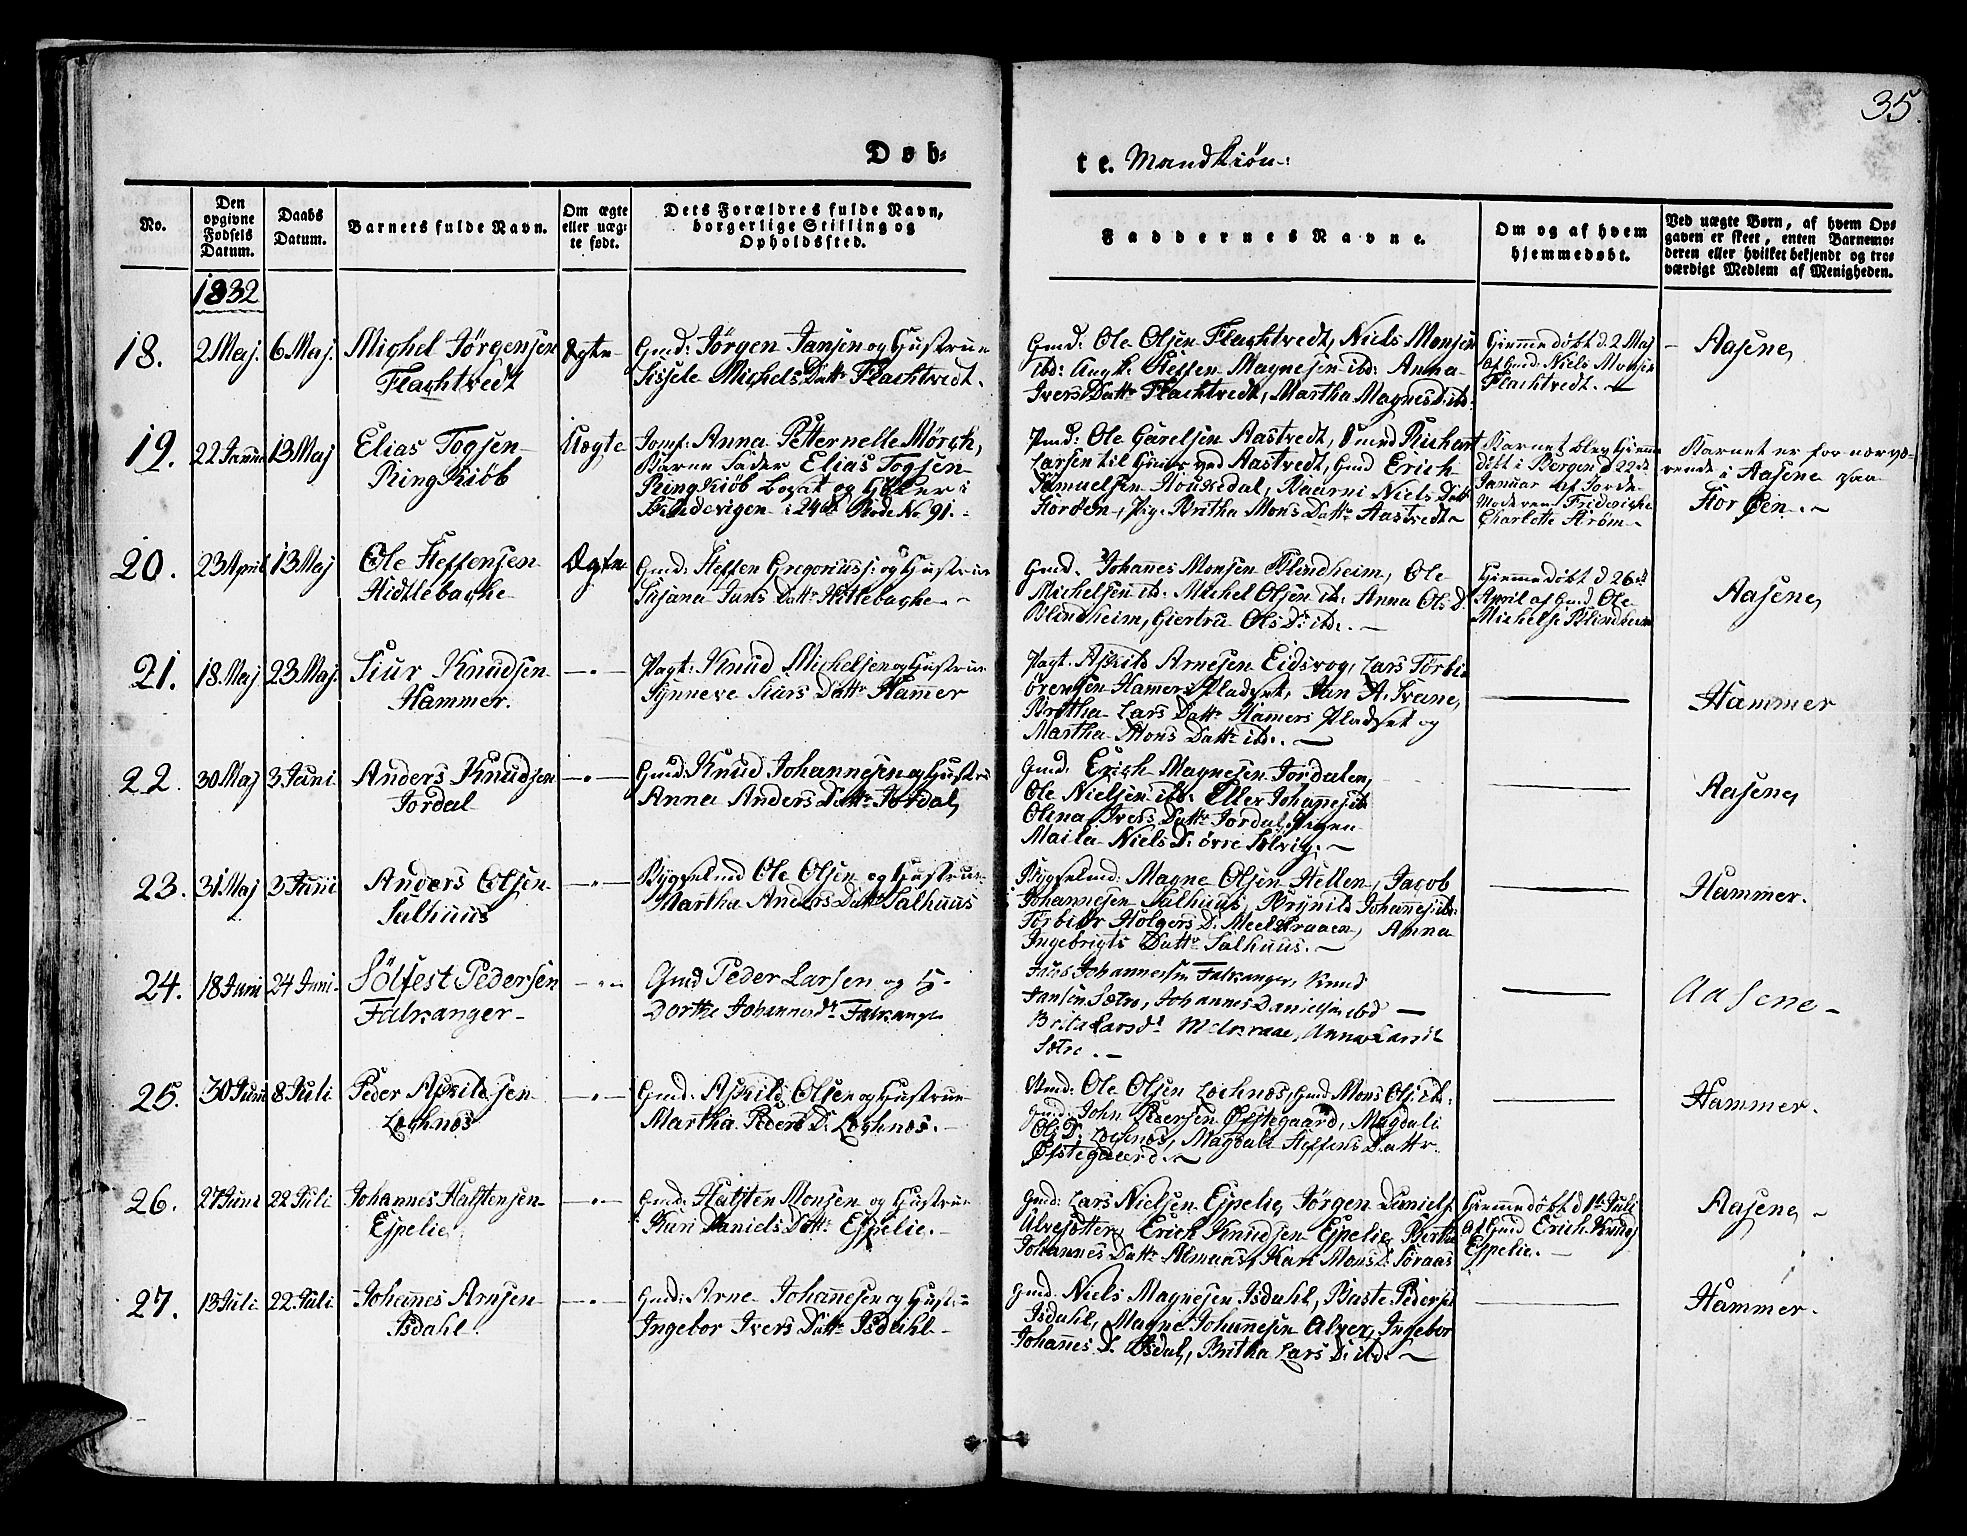 35.
Døb-
te. Mandkiøn:
No.
Den
opgivne
Fødsels
Datum.
Daabs
Datum.
Barnets fulde Navn.
Om ægte
eller uæg-
te født.
Dets Forældres fulde Navn,
borgerlige Stilling og
Opholdssted.
Faddernes Navne.
Om og af hvem
hjemmedøbt.
Ved uægte Børn, af hvem Op-
gaven er skeet, enten Barnemo-
deren eller hvilket bekjendt og tro-
værdigt Medlem af Menigheden.
1832
18. 2 Maj. 6 Maj. Michel Jørgensen
Flachtvedt
Ægte
Gmd: Jørgen Jansen og Hustrue
Sissele Michels Dattr Flachtvedt.
Gmd: Ole Olsen Flachtvedt, Niels Monsen
ibd: Ungk. Steffen Magnesen ibd: Anna
Ivers Dattr Flachtvedt, Martha Magnes D: ibd.
Hiemmedøbt d. 2 Maj
af Gmd: Niels Monsen
Flachtvedt.
Aasene,
19. 22 Januar 13 Maj Elias Togsen
Ringkiøb
Uægte
Jomf: Anna Petternelle Mörch,
Barne Fader Elias Togsen
Ringkiøb
i 24de Rode No 91.
Gmd: Ole Garelsen Aastvedt, Richart
Larsen til Huus ved Aastvedt, Gmd Erich
Samuelsen Niels Datt
Pig. Britha Mons Dattr Aastvedt
Barnet blev hiemme
døbt i Bergen d 22de
Januar af Jorde-
Moderen Friderische
Charlotte Strøm
Barnet er før nærvæ-
rende i Aasene
20. 23 April 13 Maj Ole Steffensen
Hidtlebache
Ægte
Gmd: Steffen Gregoriuss: og Hustrue
Susana Dattr Hitlebache
Gmd. Johanes Monsen Blindheim, Ole
Michelsen ibd. Michel Olsen ibd. Anna Ols D.
Blindheim, Giertru Ols D: ibd:
Hiemmedøbt d 26de
April af Gmd: Ole
Michelse Blindheim
Aasene,
21. 18 Maj 23 Maj. Siur Knudsen
Hammer.
Pagt: Knud Michelsen og Hustrue
Synneve Siurs Dattr Hamer
Pagt. Askild Arnesen Eidsvog, Lars Torbi-
örensen Hamers Pladset, Jan
Britha Lars Dattr Hamers Pladset og
Martha Mons Dattr ibd:.
Hammer
22. 30 Maj 3 Juni Anders Knudsen
Jordal
Gmd: Knud Johannesen og Hustru
Anna Anders Dattr Jordal,
Gmd: Erich Magnesen Jordalen,
Ole Nielsen ibd: Eller Johanes: ib
Olina Ivers Dattr Jordal, Pigen
Niels D: øvre
Aasene,
23. 31 Maj 3 Juni Anders Olsen
Salhuus
Bygselmd Ole Olsen og Hustrue
Martha Anders Dattr Salhuus
Bygselmd: Magne Olsen Hellen, Jacob
Johannesen Salhuus, Brynild Johannes: ib:
Torbiör Holgers D: Meelkraaen, Anna
Ingebrigts Dattr Salhuus.
Hammer.
24. 18 Juni 24 Juni. Sölfest Pedersen
Falkanger
Gmd Peder Larsen og H.
Dorthe Johannesdr Falkanger
Johannesen Falkanger, Knud
Jansen Sætre, Johannes Danielsen ibd
Brita Larsdr Melkraae, Anna
Sætre.
Aasene
25. 30 Juni 8 Juli Peder Askildsen
Lochnos
Gmd: Askild Olsen og Hustrue
Martha Peders D. Lochnos.
Gmd: Ole Olsen Lochnos, Gmd Mons Ols: ib:
Gmd: John Pedersen Østegaard, Magdali
Ols D: Lochnos, Magdali Steffens Dattr
Østegaard.
Hammer.
26. 27 Juni 22 Juli Johannes Halstensen
Espelie
Gmd: Halsten Monsen og Hustrue
Kari Daniels Dattr Espelie.
Gmd: Lars Nielsen Espelie, Jørgen Daniels:
Erich Knudsen Espelie, Bertha
Johannes Dattr Almaas, Kari Mons D: Søraas
Hiemmedøbt d 1te Juli
af Gmd Erich Knuds:
Espelie.
Aasene,
27. 13 Juli 22 Juli Johannes Arnsen
Isdahl.
Gmd: Arne Johannesen og Hustrue
Ingebor Ivers Dattr Isdahl
Gmd: Niels Magnesen Isdahl, Baste Peders:
Isdahl, Magne Johannesen Alver, Ingebor
Johannes D. Isdal, Britha Lars D: ibd:
Hammer.